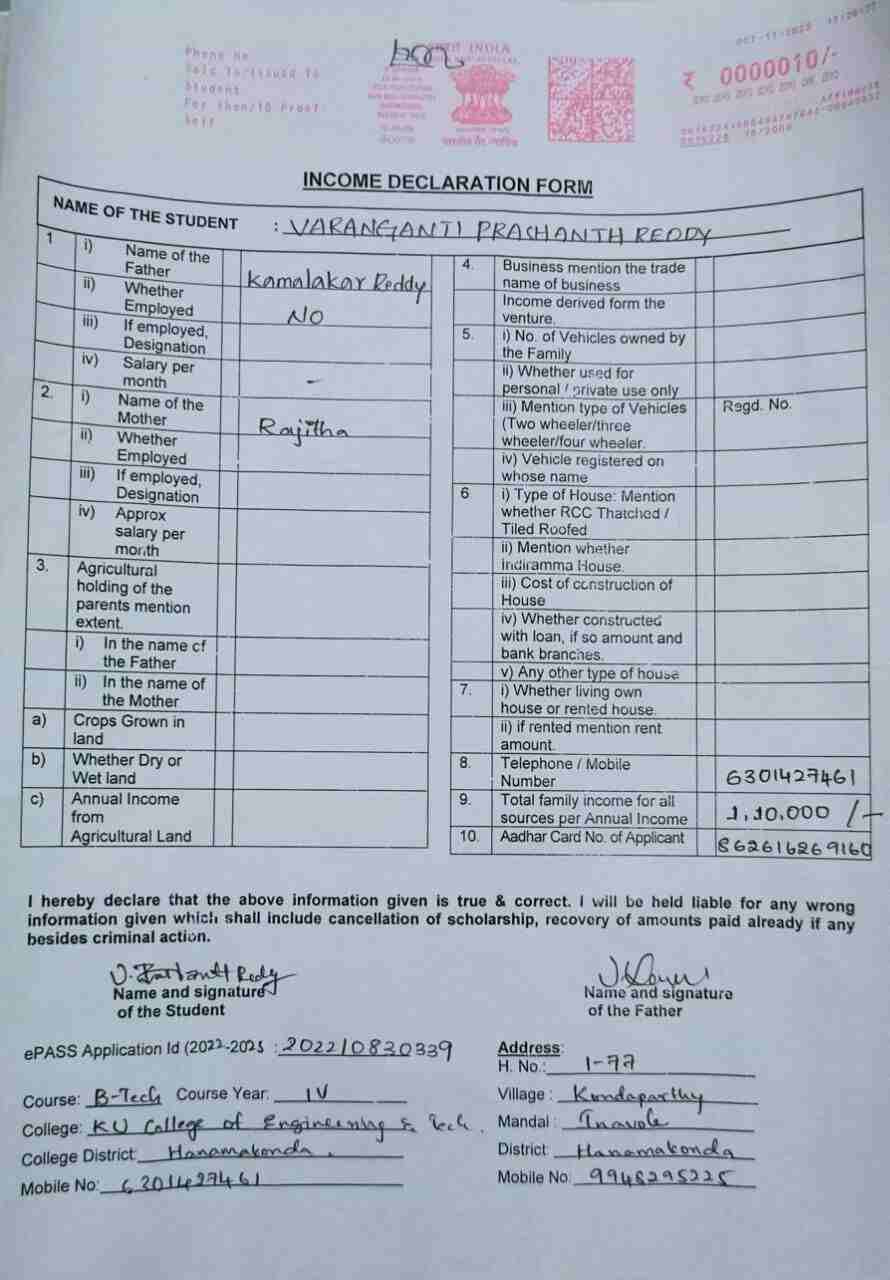 Phone No
Sold To/Issued To
Student
For Whom/ID Proof
Self
INDIA
OCT-11-2025
₹ 0000010/-
INCOME DECLARATION FORM
NAME OF THE STUDENT : VARANGANTI PRASHANTH REDDY
1 i) Name of the
Father
Kamalakar Reddy
ii) Whether
Employed
NO
iii) If employed,
Designation
iv) Salary per
month
-
2. i) Name of the
Mother
Rajitha
ii) Whether
Employed
iii) If employed,
Designation
iv) Approx
salary per
month
3. Agricultural
holding of the
parents mention
extent.
i) In the name of
the Father
ii) In the name of
the Mother
a) Crops Grown in
land
b) Whether Dry or
Wet land
c) Annual Income
from
Agricultural Land
4. Business mention the trade
name of business
Income derived form the
venture.
5. i) No. of Vehicles owned by
the Family
ii) Whether used for
personal / private use only
iii) Mention type of Vehicles
(Two wheeler/three
wheeler/four wheeler.
Regd. No.
iv) Vehicle registered on
whose name
6 i) Type of House: Mention
whether RCC Thatched /
Tiled Roofed
ii) Mention whether
Indiramma House.
iii) Cost of construction of
House
iv) Whether constructed
with loan, if so amount and
bank branches.
v) Any other type of house
7. i) Whether living own
house or rented house.
ii) if rented mention rent
amount.
8. Telephone / Mobile
Number
6301427461
9. Total family income for all
sources per Annual Income
1,10,000 /-
10. Aadhar Card No. of Applicant
862616269160
I hereby declare that the above information given is true & correct. I will be held liable for any wrong
information given which shall include cancellation of scholarship, recovery of amounts paid already if any
besides criminal action.
V. Prashanth Reddy
Name and signature
of the Student
Name and signature
of the Father
ePASS Application Id (2022-2025 : 202210830339
Course: B-Tech Course Year: IV
College: KU College of Engineering & Tech.
College District: Hanamakonda.
Mobile No: 6301427461
Address:
H. No.: 1-77
Village : Kondaparthy
Mandal : Inavole
District: Hanamakonda
Mobile No: 9948295225